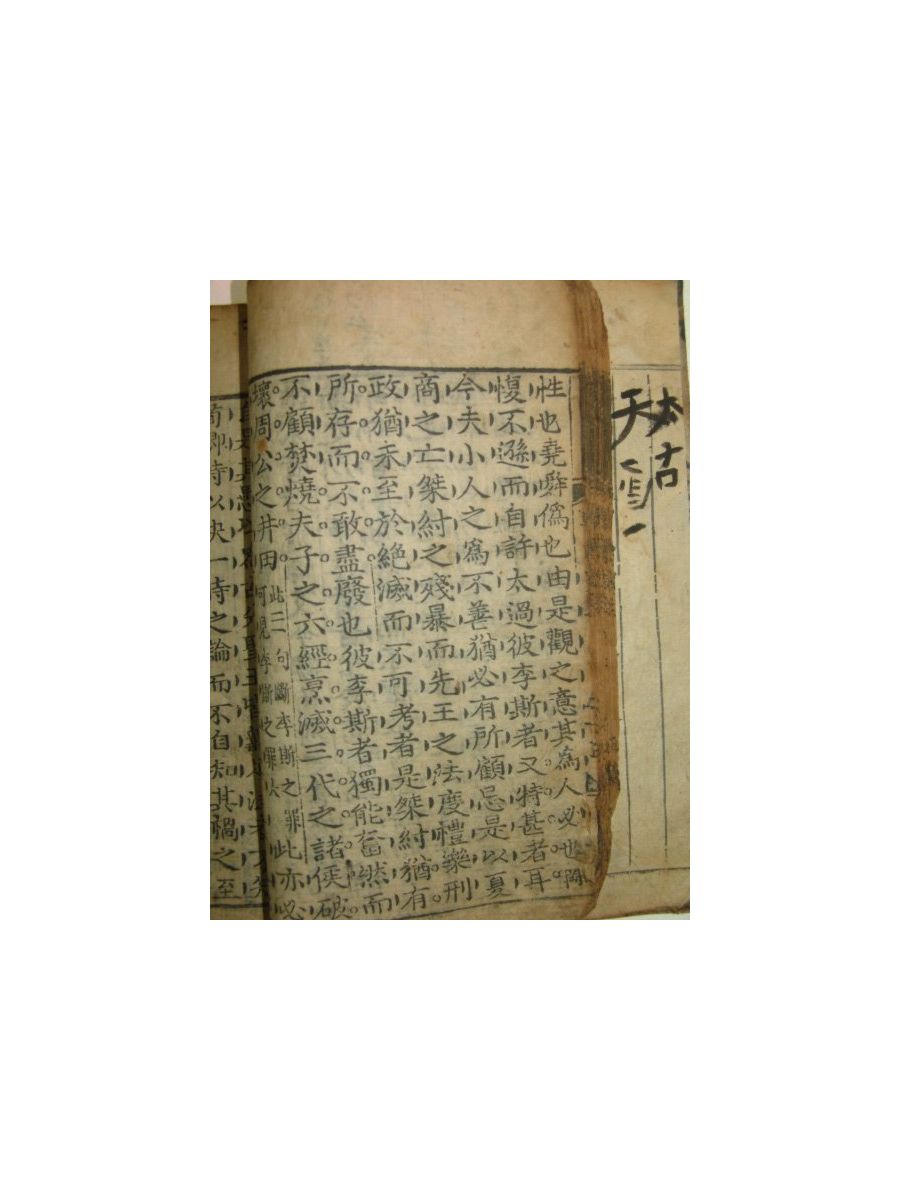 天
古
一
性也堯舜僞也由是觀之意其爲人必也剛
愎不遜而自許太過彼李斯者又特甚者耳
今夫小人之爲不善猶必有所顧忌是以夏
商之亡桀紂之殘暴而先王之法度禮樂刑
政猶未至於絶滅而不可考者是桀紂猶有
所存而不敢盡廢也彼李斯者獨能奮然而
不顧焚燒夫子之六經烹滅三代之諸侯破
壞周公之井田此三句斷李斯之罪可見李斷之罪大此亦必
荀卿特以快一時之論而不自知其禍之至